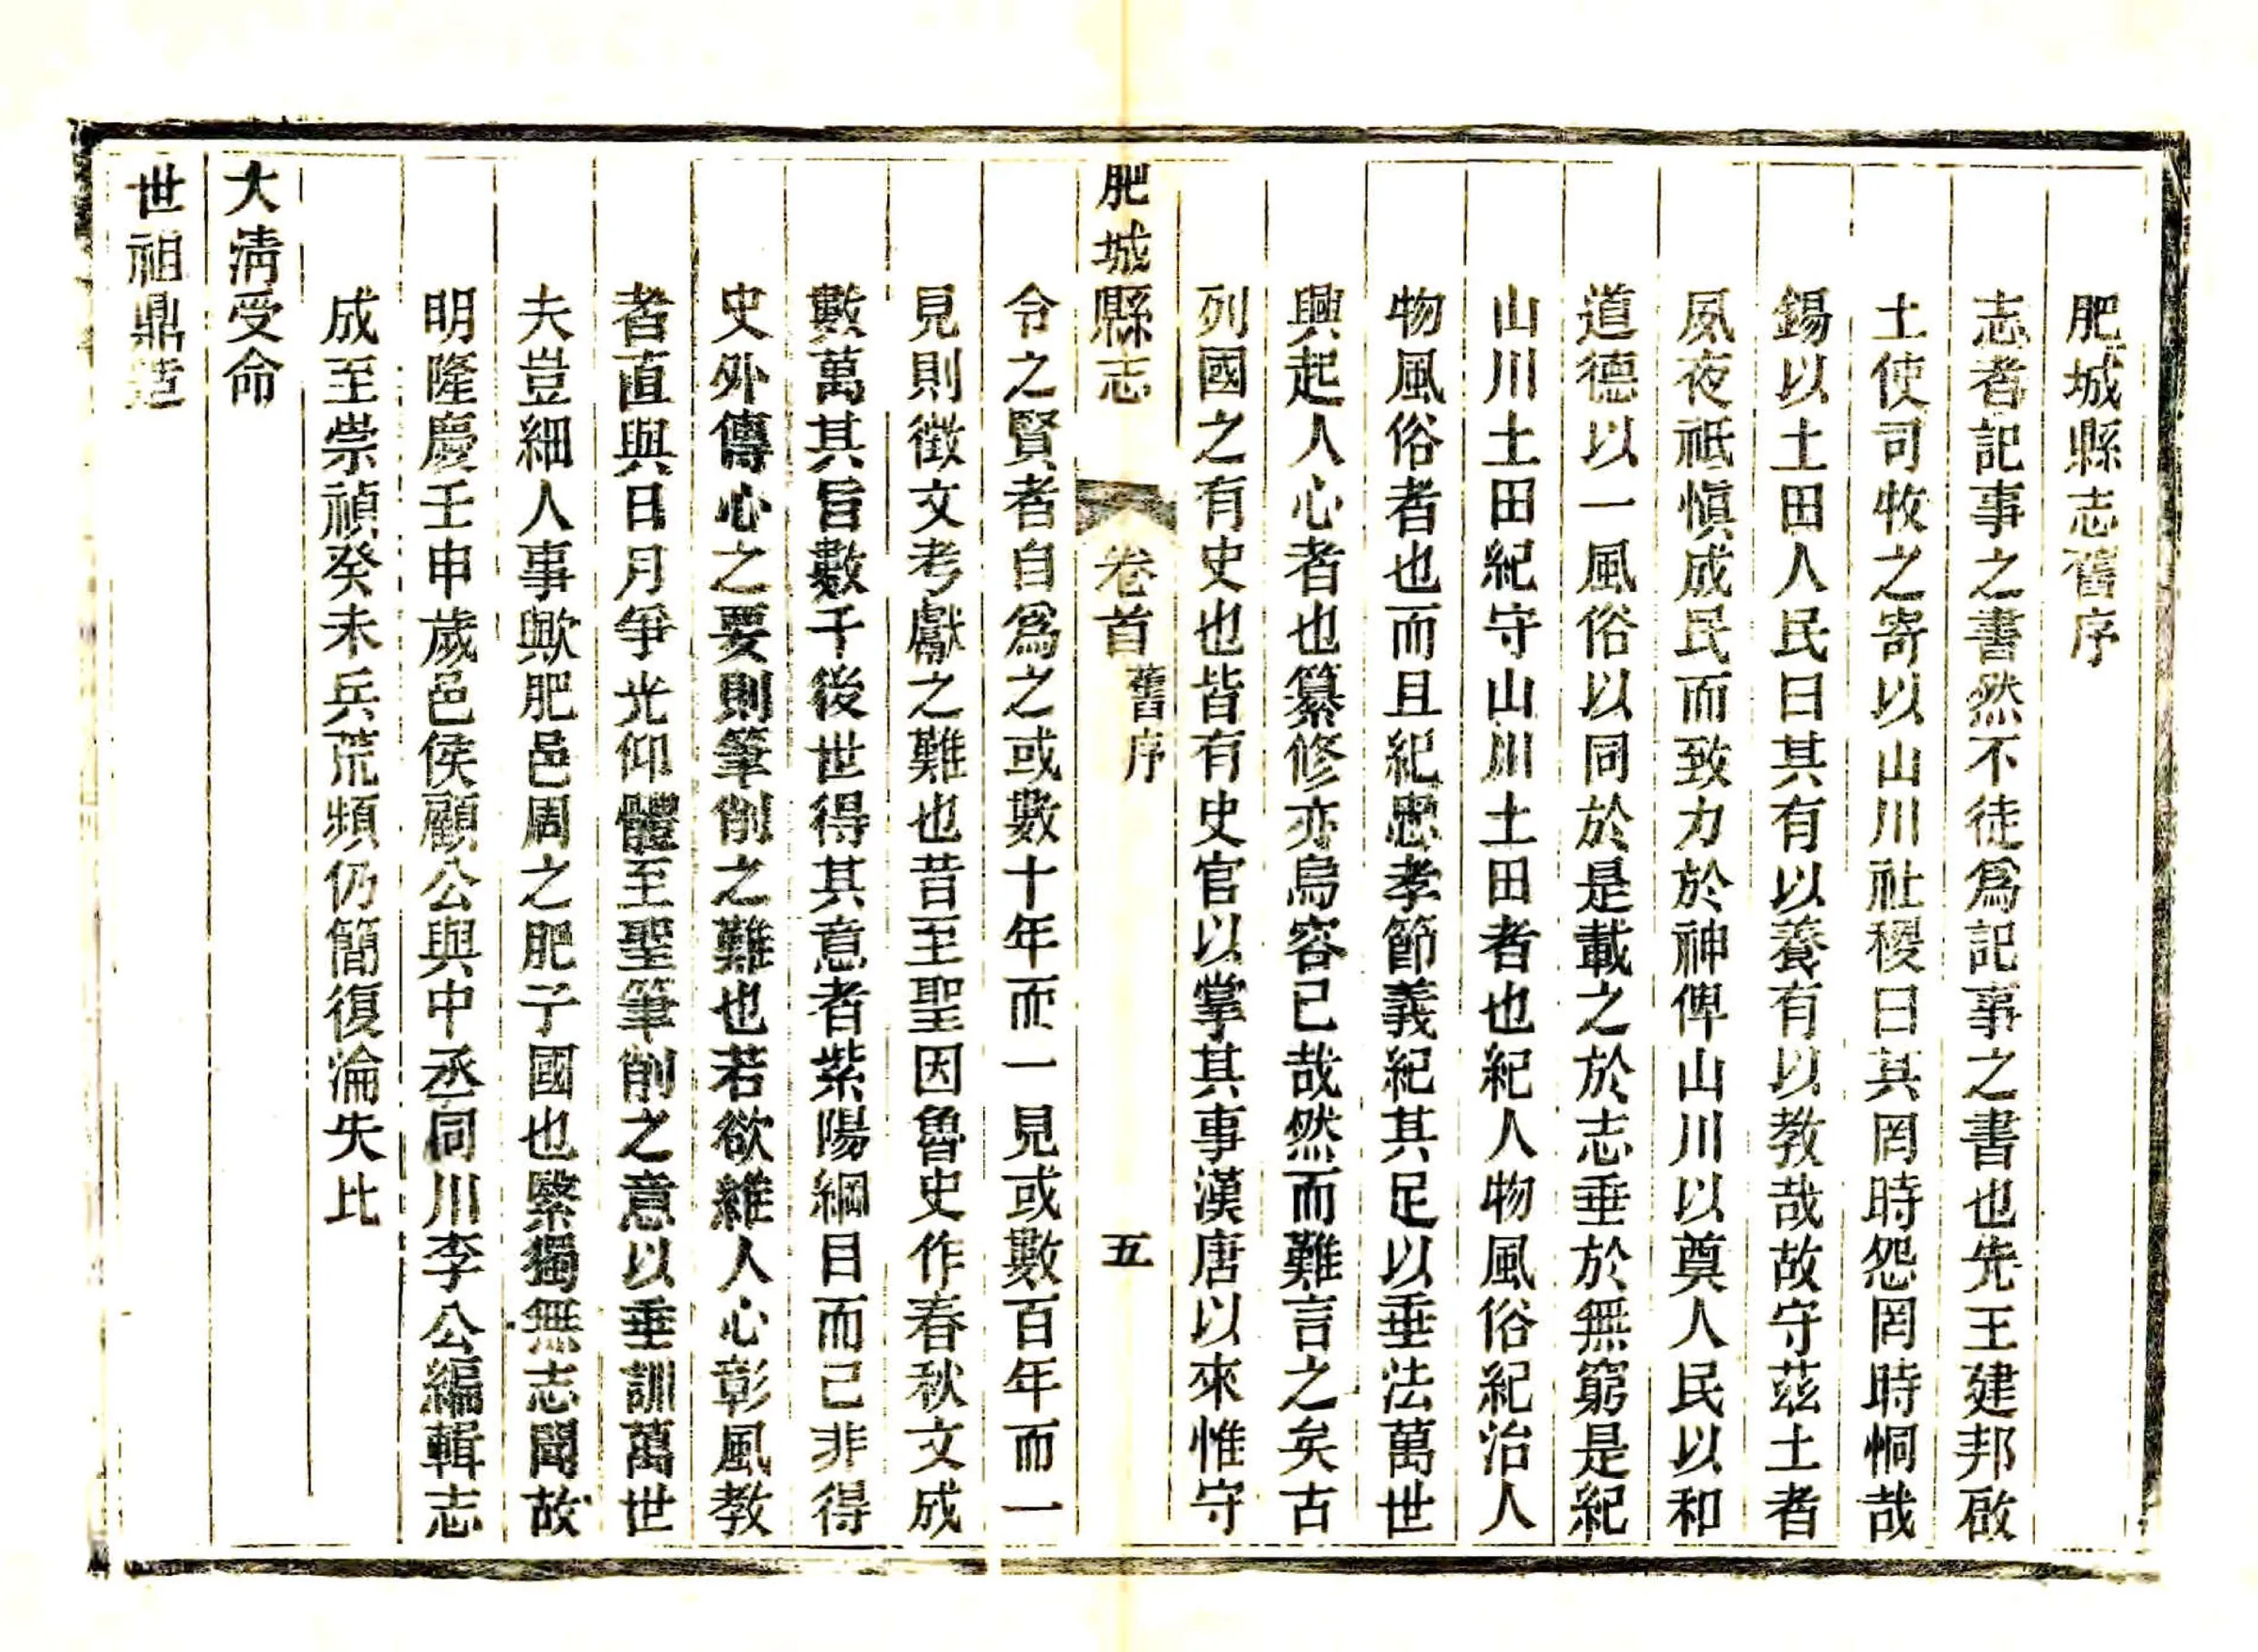 肥城縣志舊序
志者記事之書然不徒爲記事之書也先王建邦啟
土使司牧之寄以山川社稷曰其罔時怨罔時恫哉
錫以土田人民曰其有以養有以教哉故守茲土者
夙夜祗慎成民而致力於神俾山川以奠人民以和
道德以一風俗以同於是載之於志垂於無窮是紀
山川土田紀守山川土田者也紀人物風俗紀治人
物風俗者也而且紀忠孝節義紀其足以垂法萬世
興起人心者也纂修亦烏容已哉然而難言之矣古
列國之有史也皆有史官以掌其事漢唐以來惟守
肥城縣志 卷首 舊序 五
令之賢者自爲之或數十年而一見或數百年而一
見則徵文考獻之難也昔至聖因魯史作春秋文成
數萬其旨數千後世得其意者紫陽綱目而已非得
史外傳心之要則筆削之難也若欲維人心彰風教
者直與日月爭光仰體至聖筆削之意以垂訓萬世
夫豈細人事歟肥邑周之肥子國也緊獨無志聞故
明隆慶壬申歲邑侯顧公與中丞同川李公編輯志
成至崇禎癸未兵荒頻仍簡復淪失比
大清受命
世祖鼎造